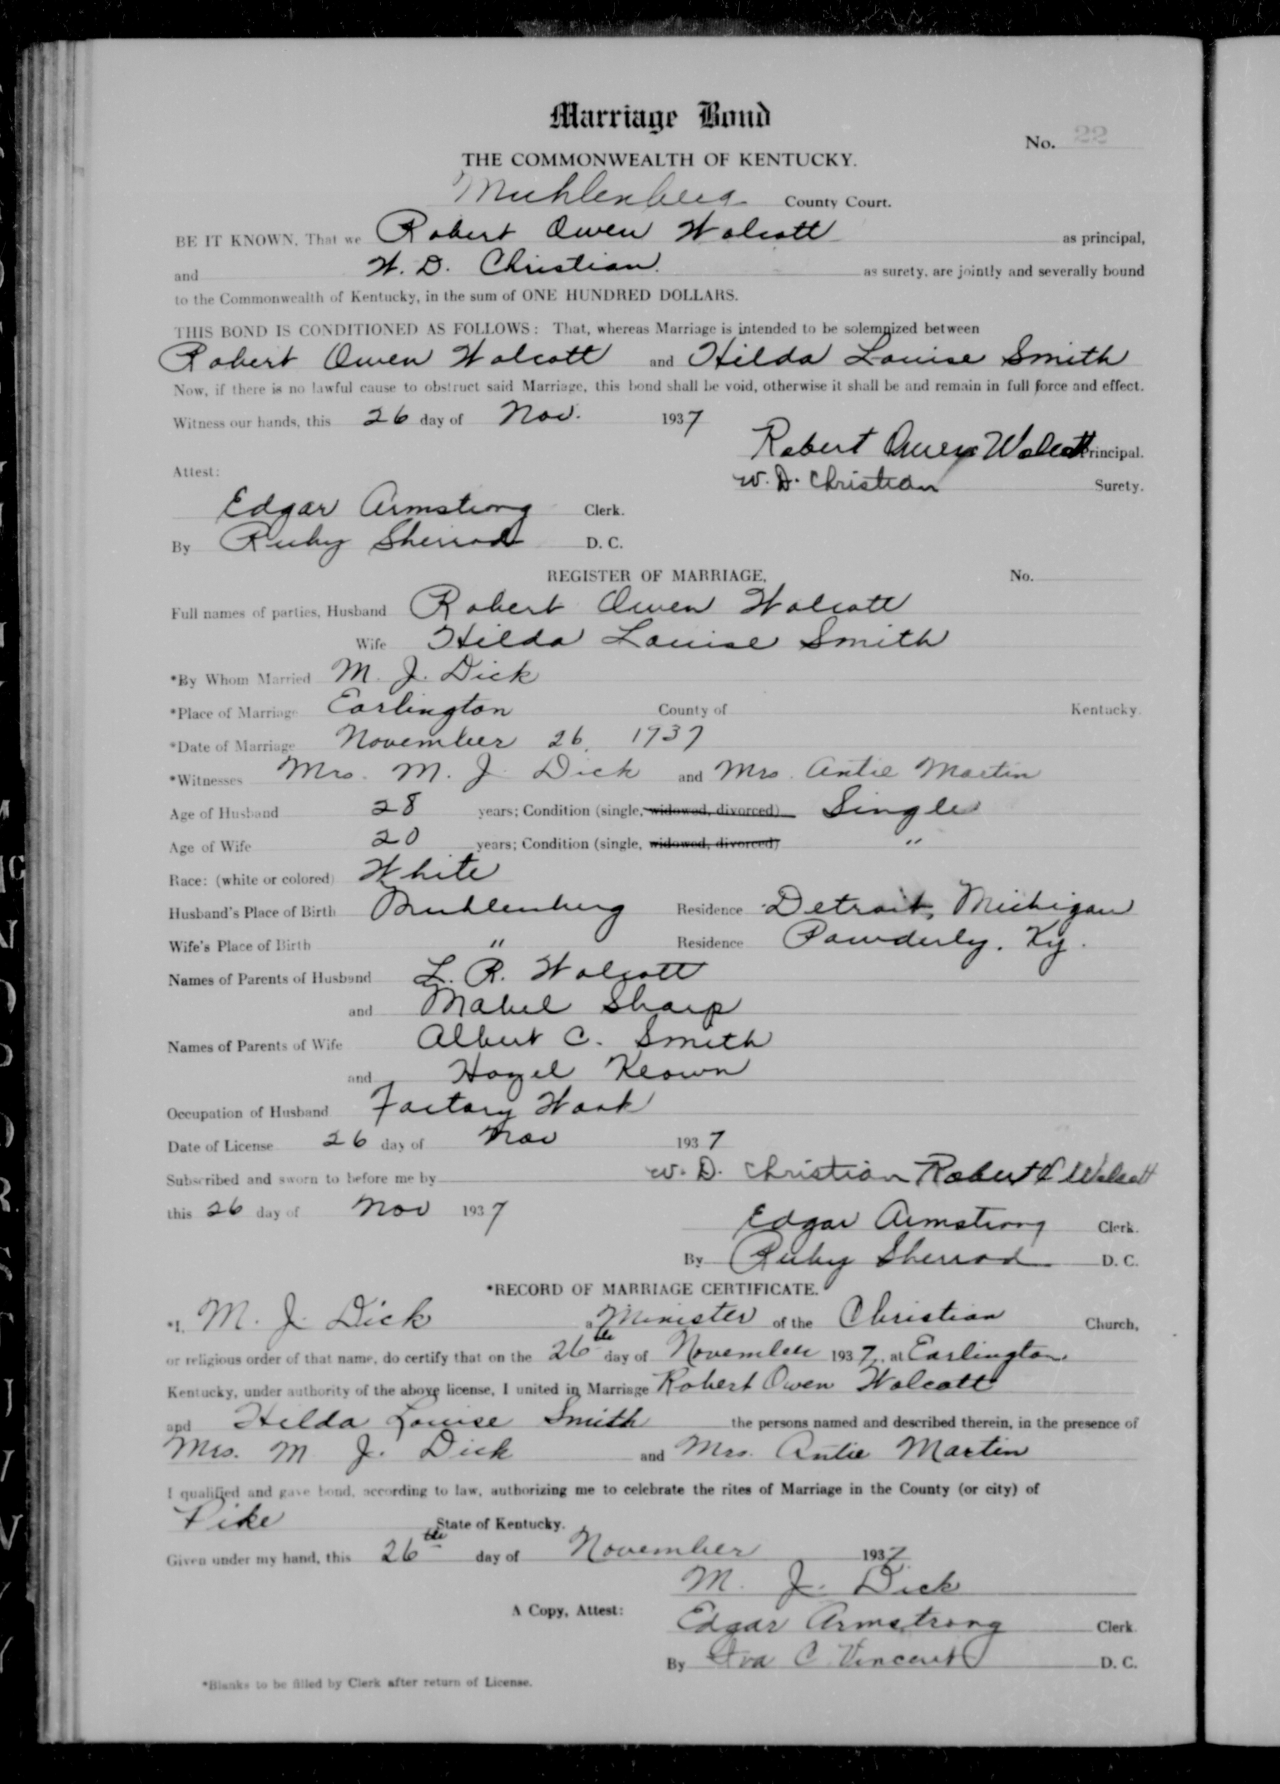 Marriage Bond
No. 22
THE COMMONWEALTH OF KENTUCKY.
Muhlenberg County Court.
BE IT KNOWN, That we Robert Owen Wolcott as principal,
and W. D. Christian as surety, are jointly and severally bound
to the Commonwealth of Kentucky, in the sum of ONE HUNDRED DOLLARS.
THIS BOND IS CONDITIONED AS FOLLOWS: That, whereas Marriage is intended to be solemnized between
Robert Owen Wolcott and Hilda Louise Smith
Now, if there is no lawful cause to obstruct said Marriage, this bond shall be void, otherwise it shall be and remain in full force and effect.
Witness our hands, this 26 day of Nov. 1937
Robert Owen Wolcott Principal.
Attest: W. D. Christian Surety.
Edgar Armstrong Clerk.
By Ruby Sherrod D. C.
REGISTER OF MARRIAGE, No.
Full names of parties, Husband Robert Owen Wolcott
Wife Hilda Louise Smith
*By Whom Married M. J. Dick
*Place of Marriage Earlington County of Kentucky.
*Date of Marriage November 26, 1937
*Witnesses Mrs. M. J. Dick and Mrs. Antie Martin
Age of Husband 28 years; Condition (single, widowed, divorced) Single
Age of Wife 20 years; Condition (single, widowed, divorced) "
Race: (white or colored) White
Husband's Place of Birth Muhlenberg Residence Detroit, Michigan
Wife's Place of Birth " Residence Powderly, Ky.
Names of Parents of Husband L. R. Wolcott
and Mabel Sharp
Names of Parents of Wife Albert C. Smith
and Hazel Keown
Occupation of Husband Factory Work
Date of License 26 day of Nov 1937
Subscribed and sworn to before me by W. D. Christian Robert O Wolcott
this 26 day of Nov 1937
Edgar Armstrong Clerk.
By Ruby Sherrod D. C.
*RECORD OF MARRIAGE CERTIFICATE.
*I, M. J. Dick a Minister of the Christian Church,
or religious order of that name, do certify that on the 26th day of November 1937, at Earlington
Kentucky, under authority of the above license, I united in Marriage Robert Owen Wolcott
and Hilda Louise Smith the persons named and described therein, in the presence of
Mrs. M J. Dick and Mrs. Antie Martin
I qualified and gave bond, according to law, authorizing me to celebrate the rites of Marriage in the County (or city) of
Pike State of Kentucky.
Given under my hand, this 26th day of November 1937
M. J. Dick
A Copy, Attest: Edgar Armstrong Clerk
By Iva C Vincent D. C.
*Blanks to be filled by Clerk after return of License.